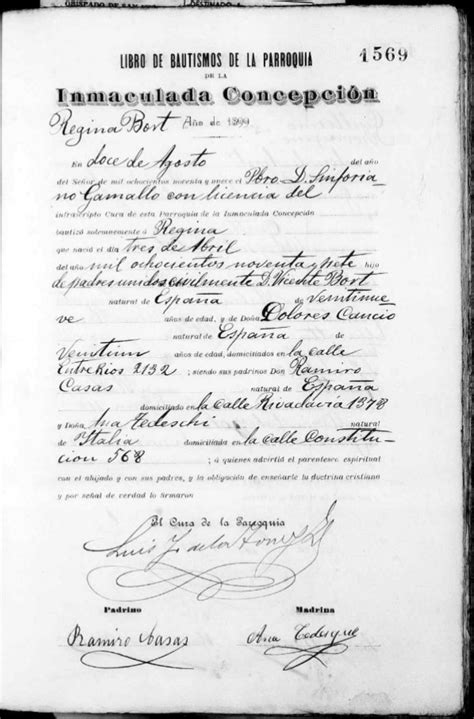 OBISPADO DE
1569
LIBRO DE BAUTISMOS DE LA PARROQUIA
DE LA
Inmaculada Concepción
Regina Bort Año de 1899
En doce de Agosto del año
del Señor de mil ochocientos noventa y nueve el Pbro. D. Sinforia-
no Gamallo con licencia del
infrascripto Cura de esta Parroquia de la Inmaculada Concepción
bautizó solemnemente á Regina
que nació el dia tres de Abril
del año mil ochocientos noventa y siete hijo
de padres unidos civilmente D. Vicente Bort
natural de España de veintinue
ve años de edad, y de Doña Dolores Cancio
natural de España de
Veintiun años de edad, domiciliados en la calle
Entre Rios 2132; siendo sus padrinos Don Ramiro
Casas natural de España
domiciliado en la calle Rivadavia 1378
y Doña Ana Tedeschi natural
de Italia domiciliada en la calle Constitu-
cion 568; á quienes advirtió el parentesco espiritual
con el ahijado y con sus padres, y la obligación de enseñarle la doctrina cristiana
y por señal de verdad lo firmaron
El Cura de la Parroquia
Luis
Padrino Madrina
Ramiro Casas Ana